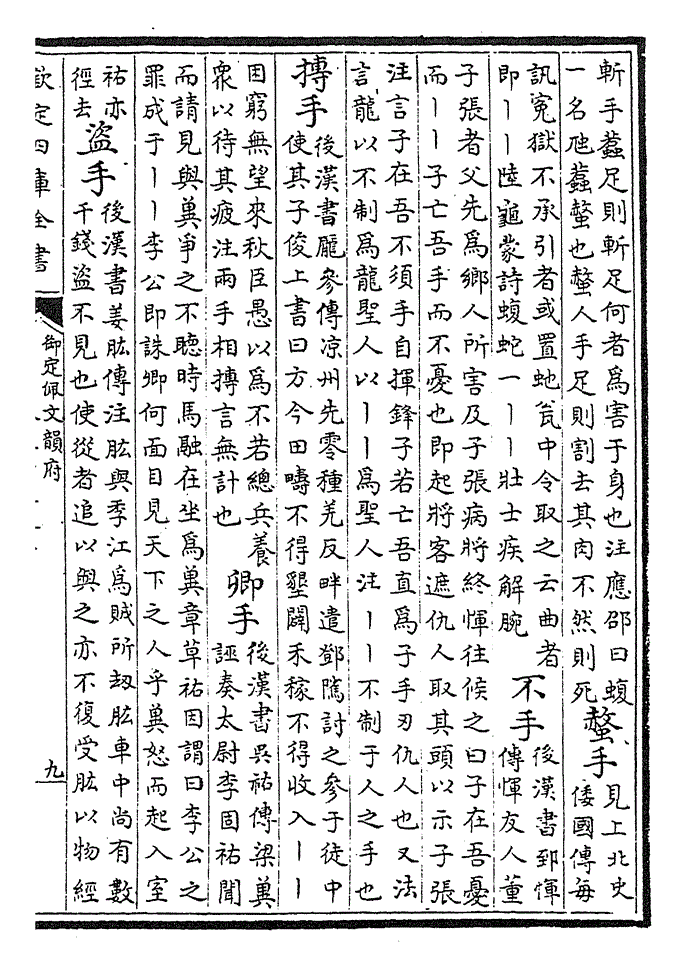 斬手蠚足則斬足何者為害于身也注應邵曰蝮
一名虺蠚螫也螫人手足則割去其肉不然則死
螫手
見上北史
倭國傳每
訊冤獄不承引者或置虵瓮中令取之云曲者
即丨丨陸龜蒙詩蝮蛇一丨丨壯士疾解腕
不手
後漢書郅惲
傳惲友人董
子張者父先為鄉人所害及子張病將終惲往候之曰子在吾憂
而丨丨子亡吾手而不憂也即起將客遮仇人取其頭以示子張
注言子在吾不須手自揮鋒子若亡吾直為子手刃仇人也又法
言龍以不制為龍聖人以丨丨為聖人注丨丨不制于人之手也
摶手
後漢書龐參傳凉州先零種羌反畔遣鄧騭討之參于徒中
使其子俊上書曰方今田疇不得墾闢禾稼不得收入丨丨
困窮無望來秋臣愚以為不若總兵養
衆以待其疲注兩手相摶言無計也
卿手
後漢書吳祐傳梁冀
誣奏太尉李固祐聞
而請見與冀爭之不聽時馬融在坐為冀章草祐因謂曰李公之
罪成于丨丨李公即誅卿何面目見天下之人乎冀怒而起入室
祐亦
徑去
盜手
後漢書姜肱傳注肱與季江為賊所刼肱車中尚有數
千錢盜不見也使從者追以與之亦不復受肱以物經
欽定四庫全書
御定佩文韻府
九